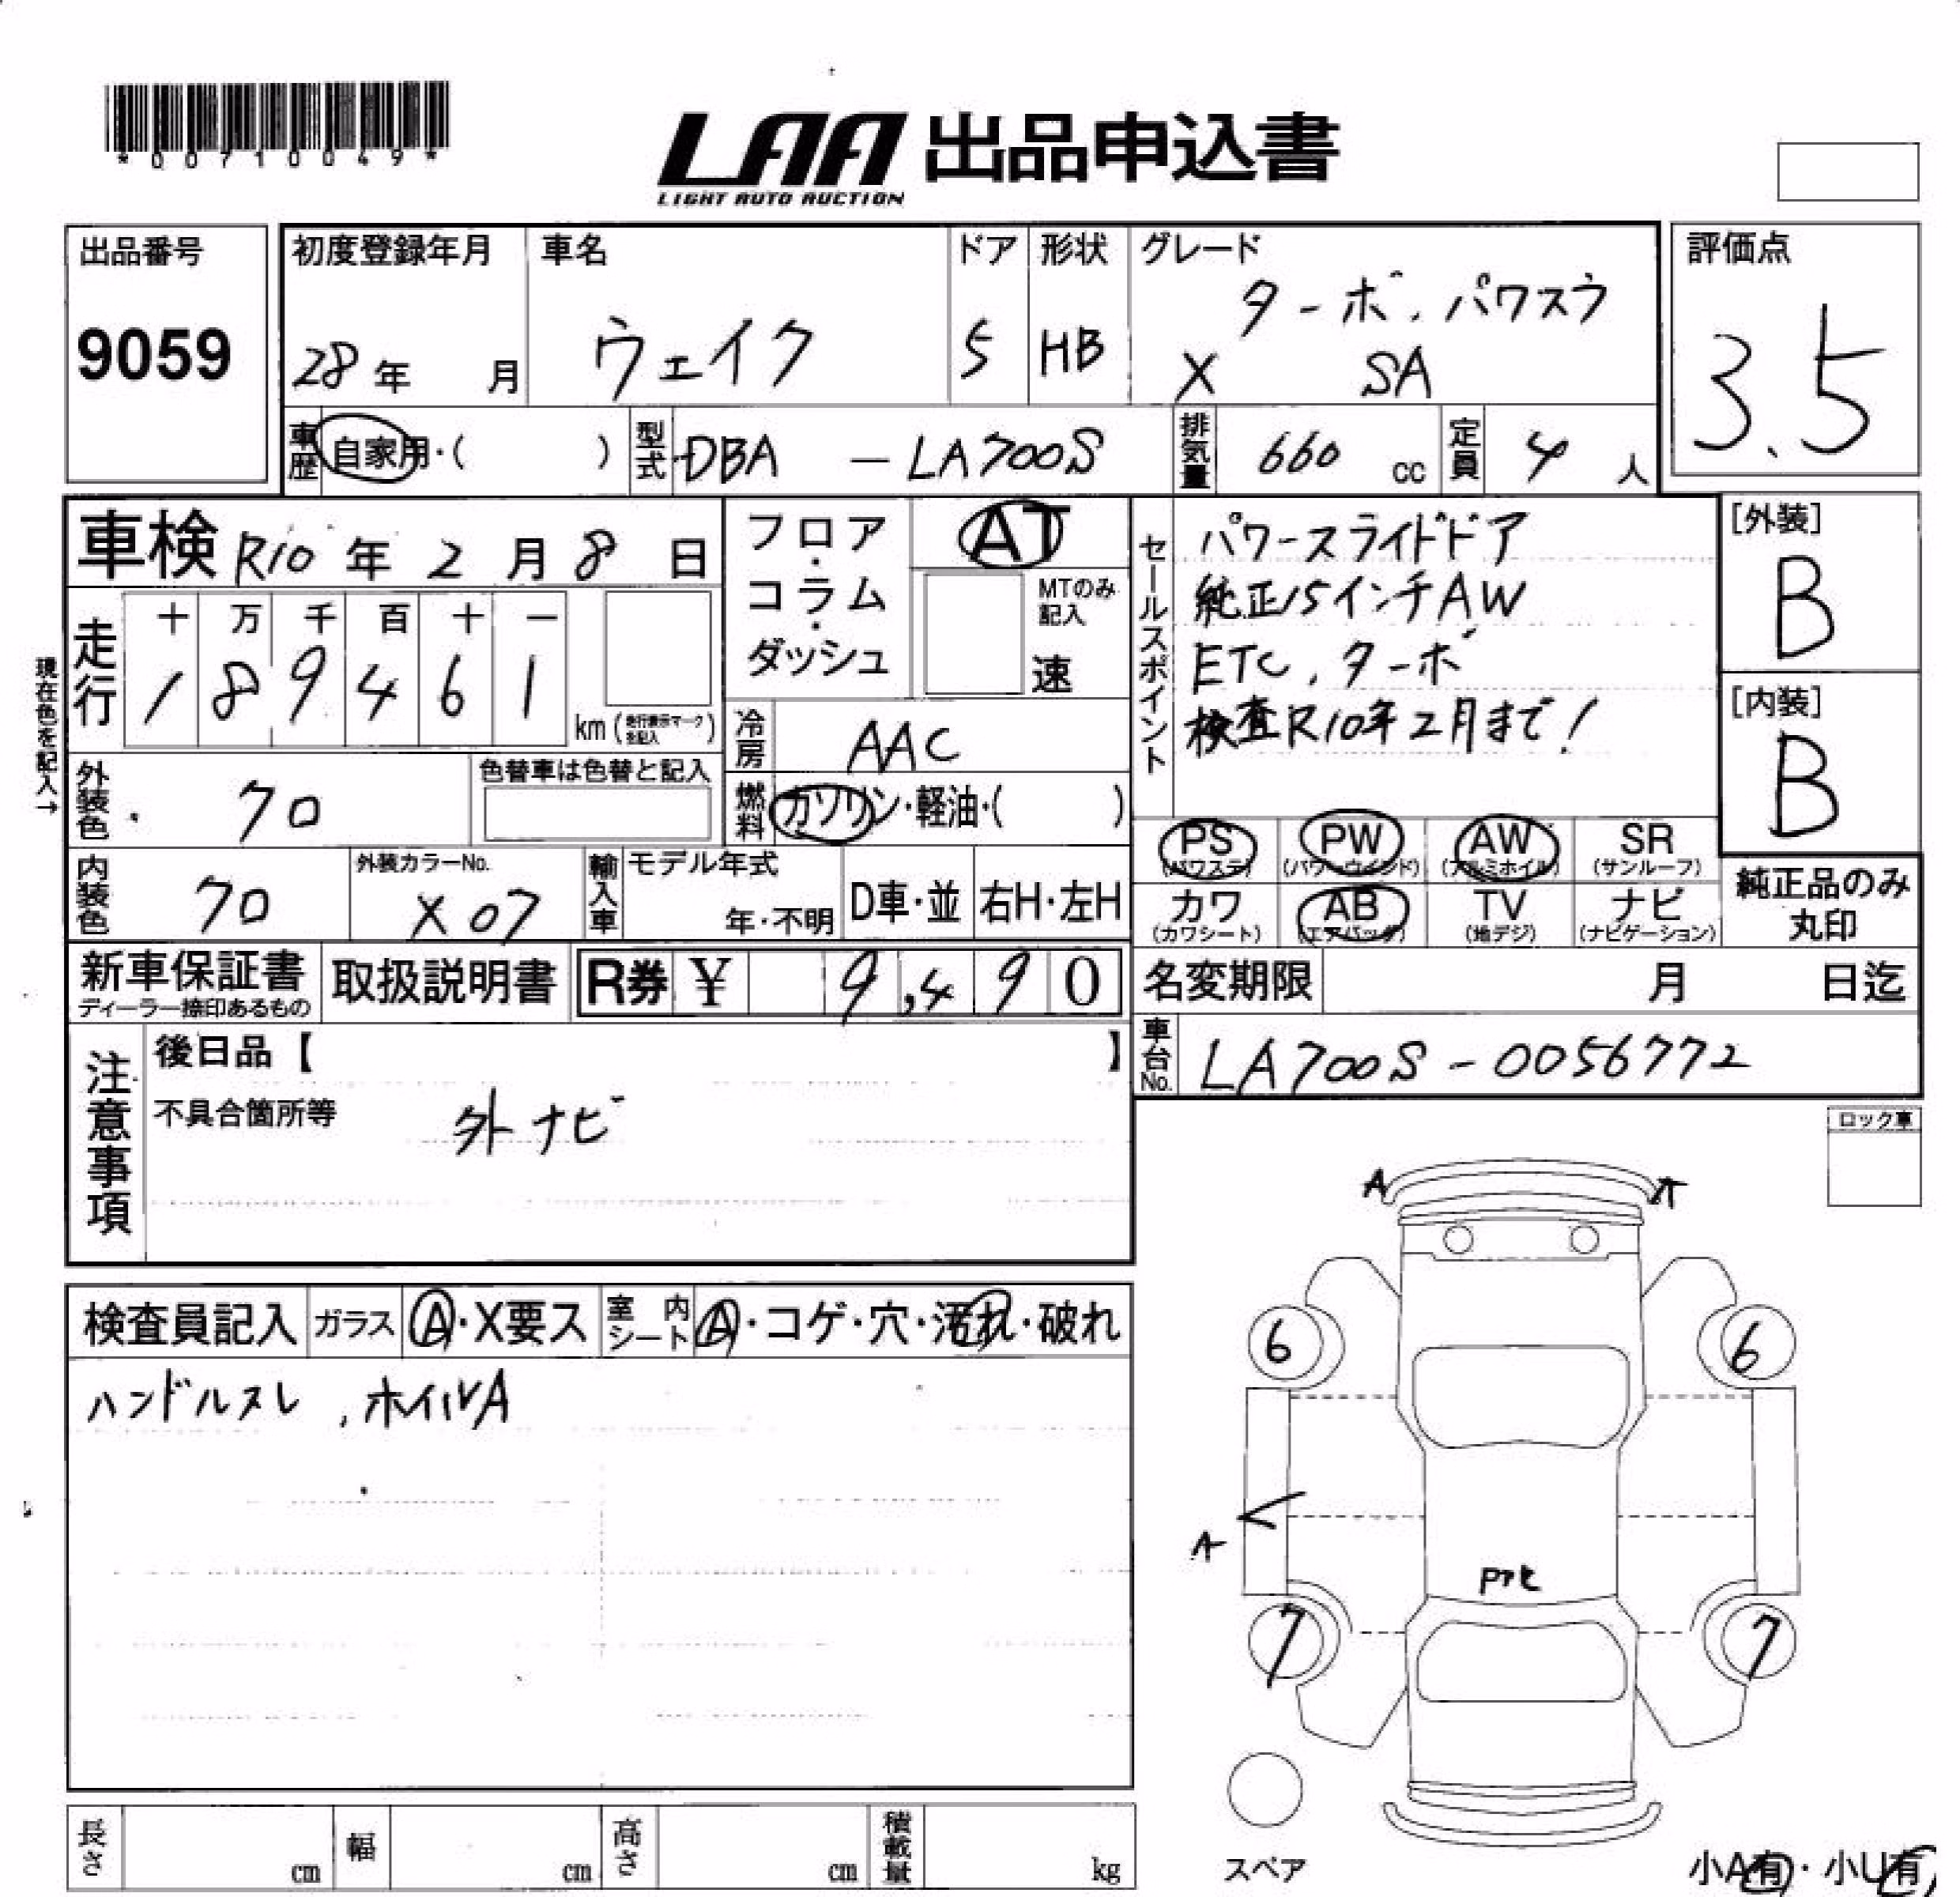 *00710049*
LAA 出品申込書
LIGHT AUTO AUCTION
出品番号
9059
初度登録年月
28年 月
車名
ウェイク
ドア
5
形状
HB
グレード
ターボ、パワスラ
X SA
評価点
3.5
車歴 自家用・( )
型式 DBA - LA700S
排気量 660 cc
定員 4 人
車検 R10年2月8日
フロア・コラム・ダッシュ
AT
MTのみ記入
速
現在色を記入→
走行
十 万 千 百 十 一
1 8 9 4 6 1
km(走行表示マークを記入)
冷房 AAC
燃料 ガソリン・軽油・( )
外装色 クロ
色替車は色替と記入
内装色 クロ
外装カラーNo.
X07
輸入車
モデル年式
年・不明
D車・並
右H・左H
セールスポイント
パワースライドドア
純正15インチAW
ETC、ターボ
検査R10年2月まで!
[外装]
B
[内装]
B
PS (パワステ)
PW (パワーウインド)
AW (アルミホイル)
SR (サンルーフ)
カワ (カワシート)
AB (エアバッグ)
TV (地デジ)
ナビ (ナビゲーション)
純正品のみ丸印
新車保証書
ディーラー捺印あるもの
取扱説明書
R券 ¥ 9,490
名変期限 月 日迄
車台No. LA700S-0056772
注意事項
後日品【 】
不具合箇所等
外ナビ
ロック車
検査員記入
ガラス A・X要ス
室内シート A・コゲ・穴・汚れ・破れ
ハンドルスレ、ホイルA
A A
6 6
A
7 7
スペア
長さ cm
幅 cm
高さ cm
積載量 kg
小A有・小U有